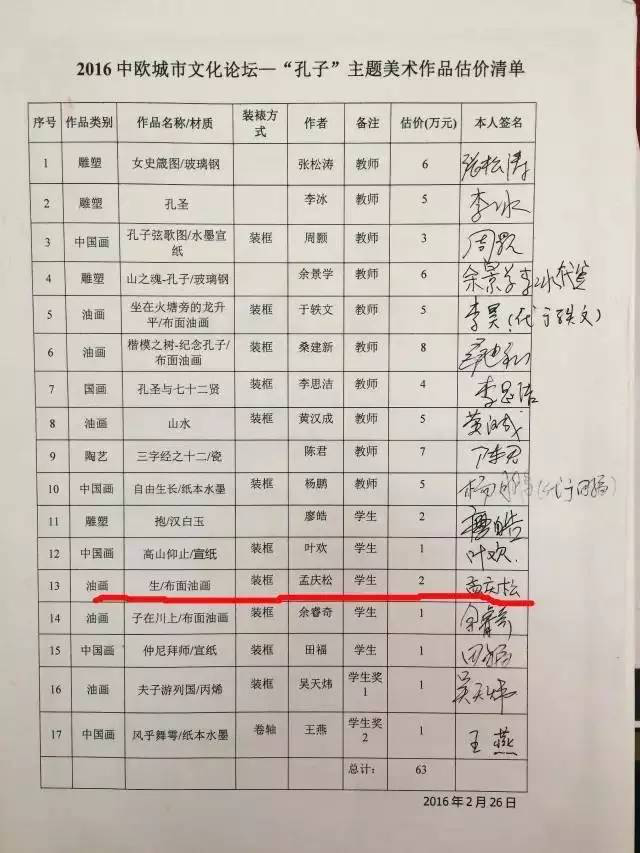 2016 中欧城市文化论坛—“孔子”主题美术作品估价清单
序号 作品类别 作品名称/材质 装裱方式 作者 备注 估价(万元) 本人签名
1 雕塑 女史箴图/玻璃钢 张松涛 教师 6 张松涛
2 雕塑 孔圣 李冰 教师 5 李冰
3 中国画 孔子弦歌图/水墨宣纸 装框 周颢 教师 3 周颢
4 雕塑 山之魂-孔子/玻璃钢 余景学 教师 6 余景学李冰代签
5 油画 坐在火塘旁的龙升平/布面油画 装框 于轶文 教师 5 李昊(代于轶文)
6 油画 楷模之树-纪念孔子/布面油画 装框 桑建新 教师 8
7 国画 孔圣与七十二贤 装框 李思洁 教师 4 李思洁
8 油画 山水 装框 黄汉成 教师 5 黄汉成
9 陶艺 三字经之十二/瓷 陈君 教师 7 陈君
10 中国画 自由生长/纸本水墨 装框 杨鹏 教师 5 杨鹏
11 雕塑 抱/汉白玉 廖皓 学生 2 廖皓
12 中国画 高山仰止/宣纸 装框 叶欢 学生 1 叶欢
13 油画 生/布面油画 装框 孟庆松 学生 2 孟庆松
14 油画 子在川上/布面油画 装框 余睿奇 学生 1 余睿奇
15 中国画 仲尼拜师/宣纸 装框 田福 学生 1 田福
16 油画 夫子游列国/丙烯 装框 吴天炜 学生奖1 1 吴天炜
17 中国画 风乎舞雩/纸本水墨 卷轴 王燕 学生奖2 1 王燕
总计： 63
2016 年 2 月 26 日